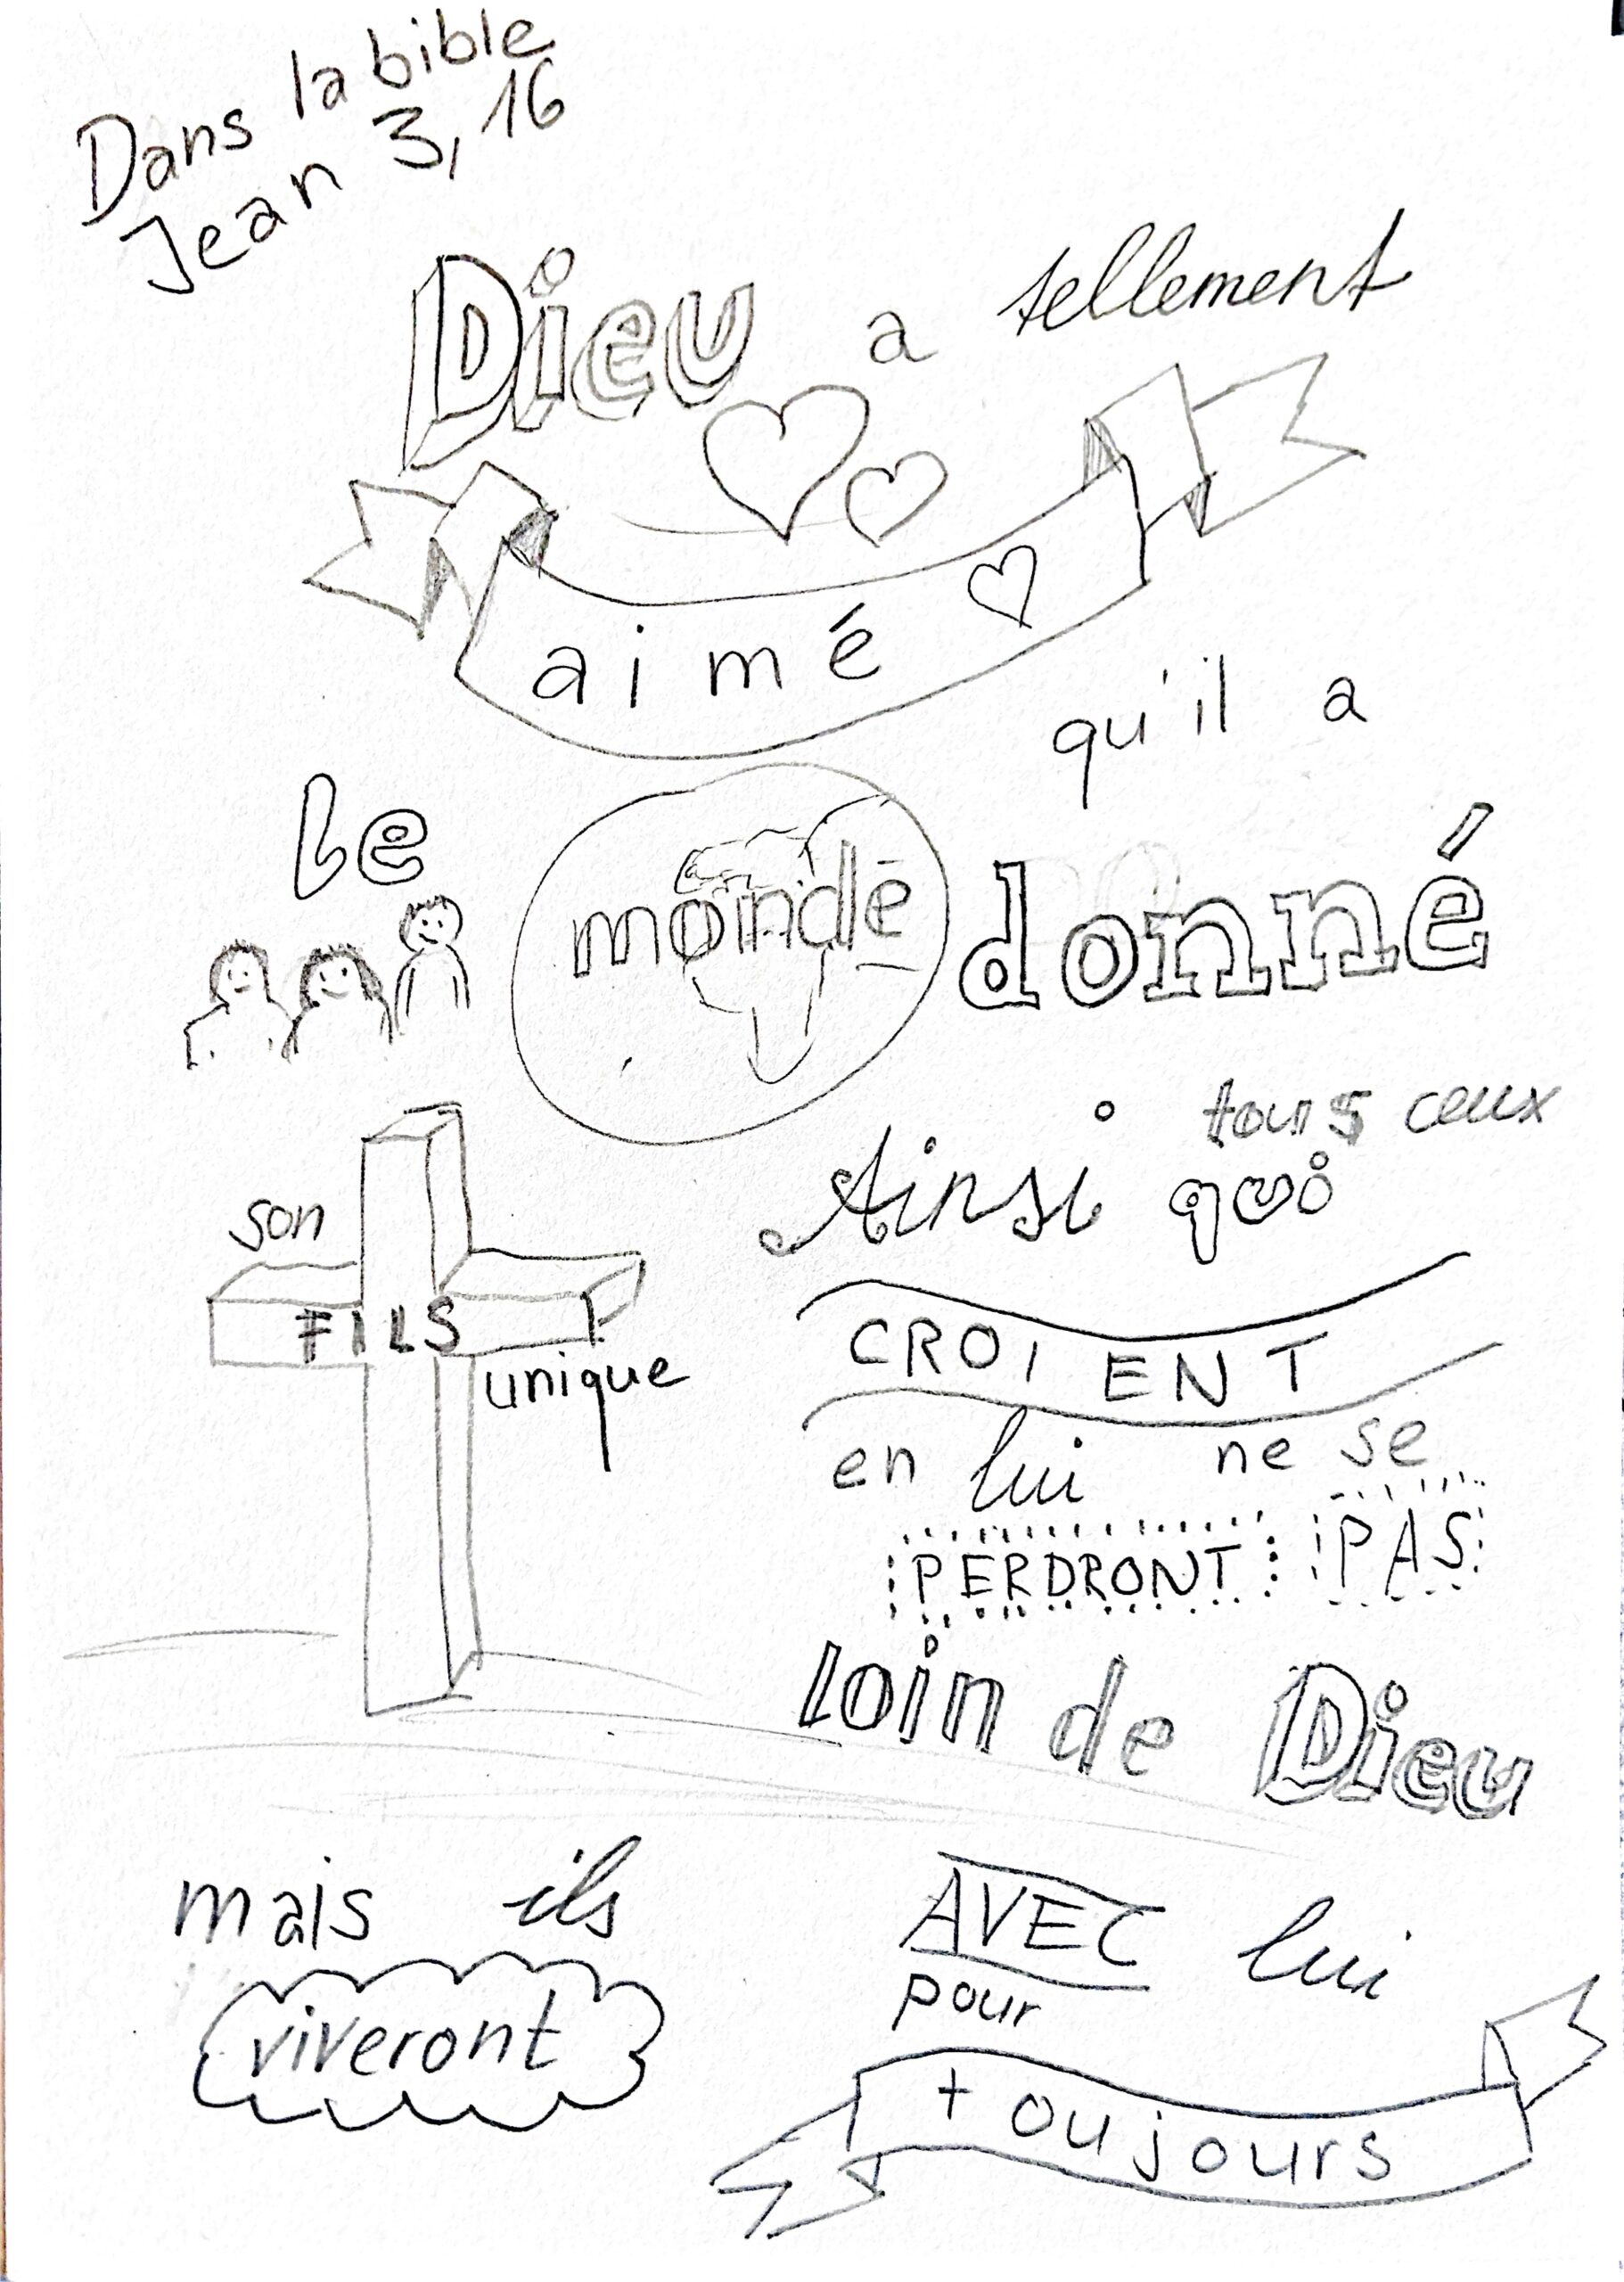 Dans la bible
Jean 3, 16
Dieu a tellement
aimé
le monde
qu'il a
donné
son
FILS
unique
Ainsi tous ceux
qui
CROIENT
en lui ne se
PERDRONT PAS
loin de Dieu
mais ils
viveront
AVEC lui
pour
toujours